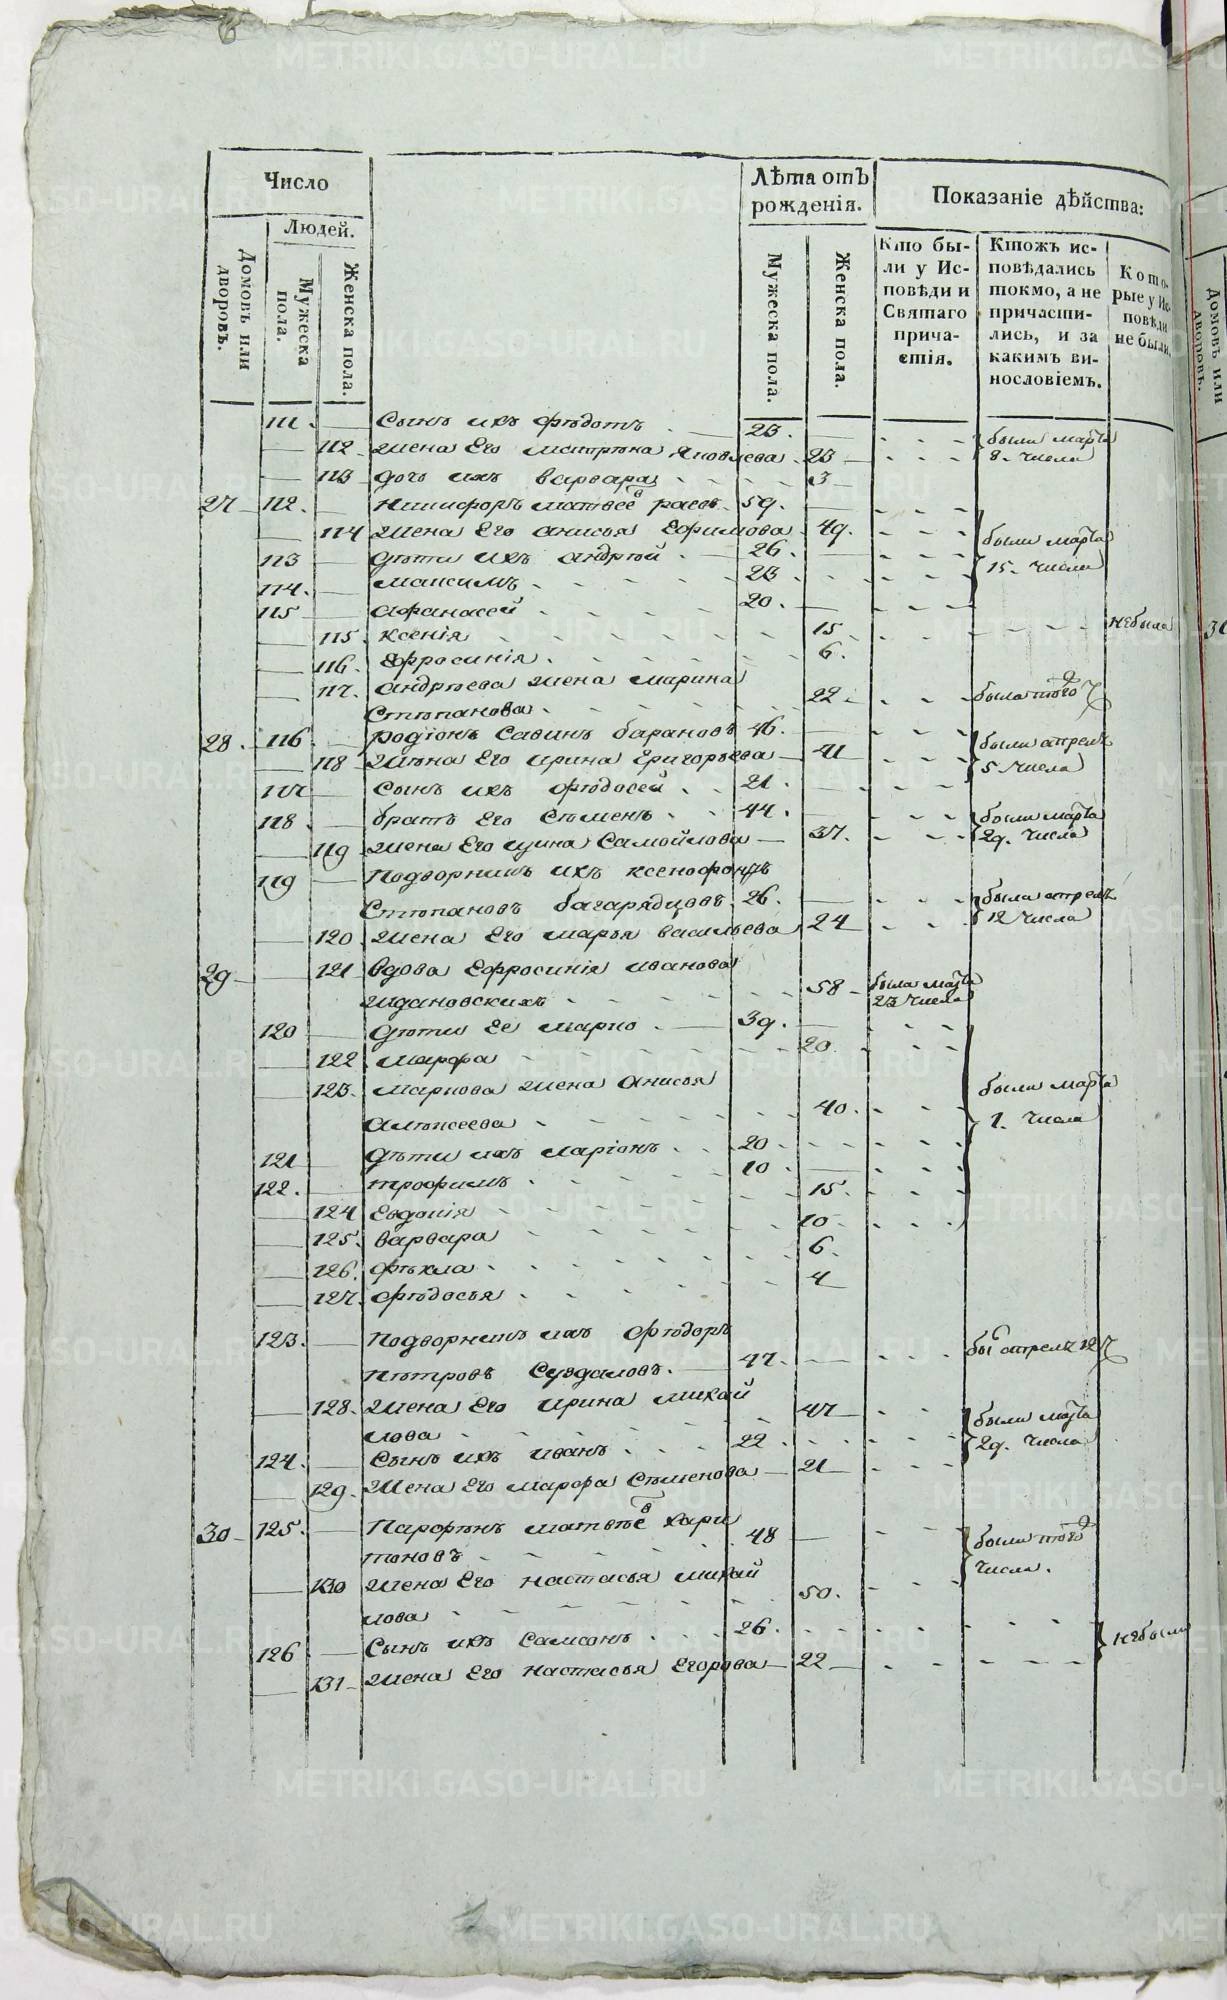 Число
Людей.
Домовъ или дворовъ.
Мужеска пола.
Женска пола.
Лѣта отъ рожденія.
Мужеска пола.
Женска пола.
Показаніе дѣйства:
Кто были у Исповѣди и Святаго причастія.
Ктожъ исповѣдались токмо, а не причастились, и за какимъ винословіемъ.
Которые у Исповѣди не были.
111. Сынъ ихъ Ѳедотъ 23.
112 жена Его матрѣна Яковлева 23 были марта 8. числа
113 дочь ихъ варвара 3
27 112. Никифоръ матвеевъ 59.
114 жена Его анисья Ефимова 49. были марта
113 дѣти ихъ андрѣй 26. 15. числа
114. максимъ 23
115 афанасей 20.
115. ксенія 15 небыла
116. Ефросинія 6.
117. андрѣева жена марина
Стѣпанова 22 была того ч
28. 116. родіонъ Савинъ барановъ 46. были апрель
118 жѣна Его ирина григорьева 41 5 числа
117 Сынъ ихъ Ѳедосей 21.
118. братъ Его Сѣменъ 44. были марта
119 жена Его Самойлова 37. 29. числа
119 Подворникъ ихъ ксенофонтъ
Стѣпановъ багарядцовъ 26. были апрель
120. жена Его марья васильева 24 12 числа
29 121 вдова Ефросинія иванова
ждановскихъ 58 была марта 23 числа
120 дѣти Ее марко 39.
122. марфа 20
123. маркова жена анисья были марта
алѣксеева 40. 1. числа
121 дѣти ихъ ларіонъ 20
122. трофимъ 10
124 Евдокія 15.
125. варвара 10
126. Ѳекла 6.
127. Ѳедосья 4
123. Подворникъ ихъ Ѳедоръ
Пѣтровъ Суздаловъ. 47. апрель 12 ч
128. жена Его ирина михай
лова 47 были марта
124. Сынъ ихъ иванъ 22 29. числа
129. жена Его марфа Сѣменова 21
30 125. Парфѣнъ матвѣевъ хари
тоновъ 48 были того
130 жена Его настасья михай числа.
лова 50.
126 Сынъ ихъ Самсонъ 26. небыли
131 жена Его настасья Егорова 22